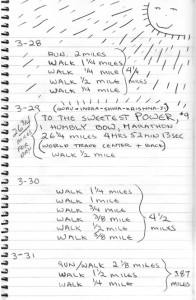 3-28
RUN 2 MILES
WALK 1 1/4 MILES
WALK 1/4 MILE
WALK 1/2 MILE
WALK 1/4 MILE
4 1/4
MILES
3-29
TO THE SWEETEST POWER, #9
I HUMBLY BOW, MARATHON
26 1/4 MILES 4HRS 52MIN 13SEC
(WORLD TRADE CENTER + BACK)
WALK 1/2 MILE
26 3/4
MILES
FOR
DAY
3-30
WALK 1 1/4 MILE
WALK 1 MILE
WALK 3/4 MILE
WALK 3/8 MILE
WALK 1/2 MILE
WALK 5/8 MILE
4 1/2
MILES
3-31
RUN/WALK 2 1/8 MILES
WALK 1 1/2 MILES
WALK 1/4 MILE
3.87
MILES